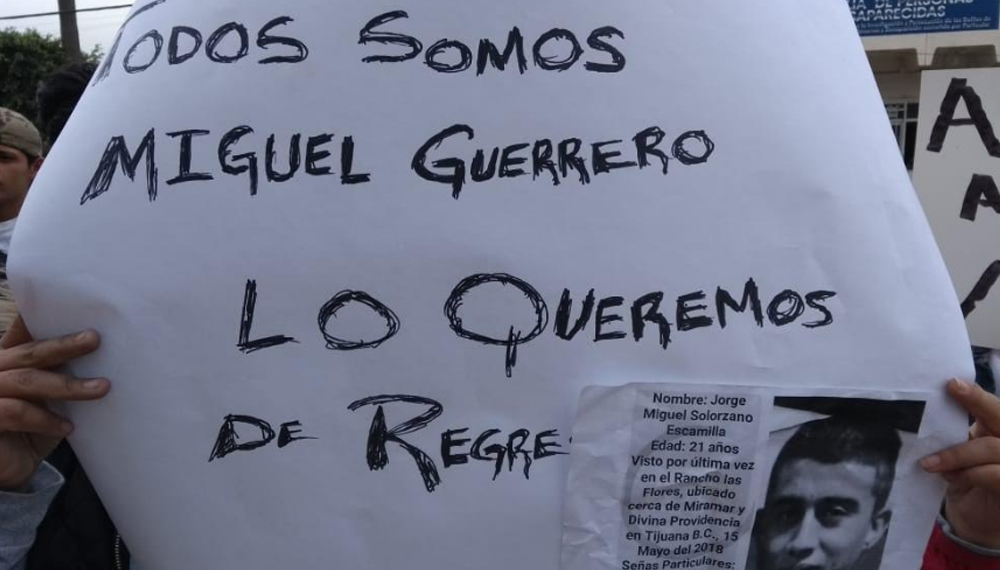 TODOS SOMOS
MIGUEL GUERRERO
LO QUEREMOS
DE REGRE
Nombre: Jorge
Miguel Solorzano
Escamilla
Edad: 21 años
Visto por última vez
en el Rancho las
Flores, ubicado
cerca de Miramar y
Divina Providencia
en Tijuana B.C., 15
Mayo del 2018
Señas Particulares:
DE PERSONAS
APARECIDAS
A
A